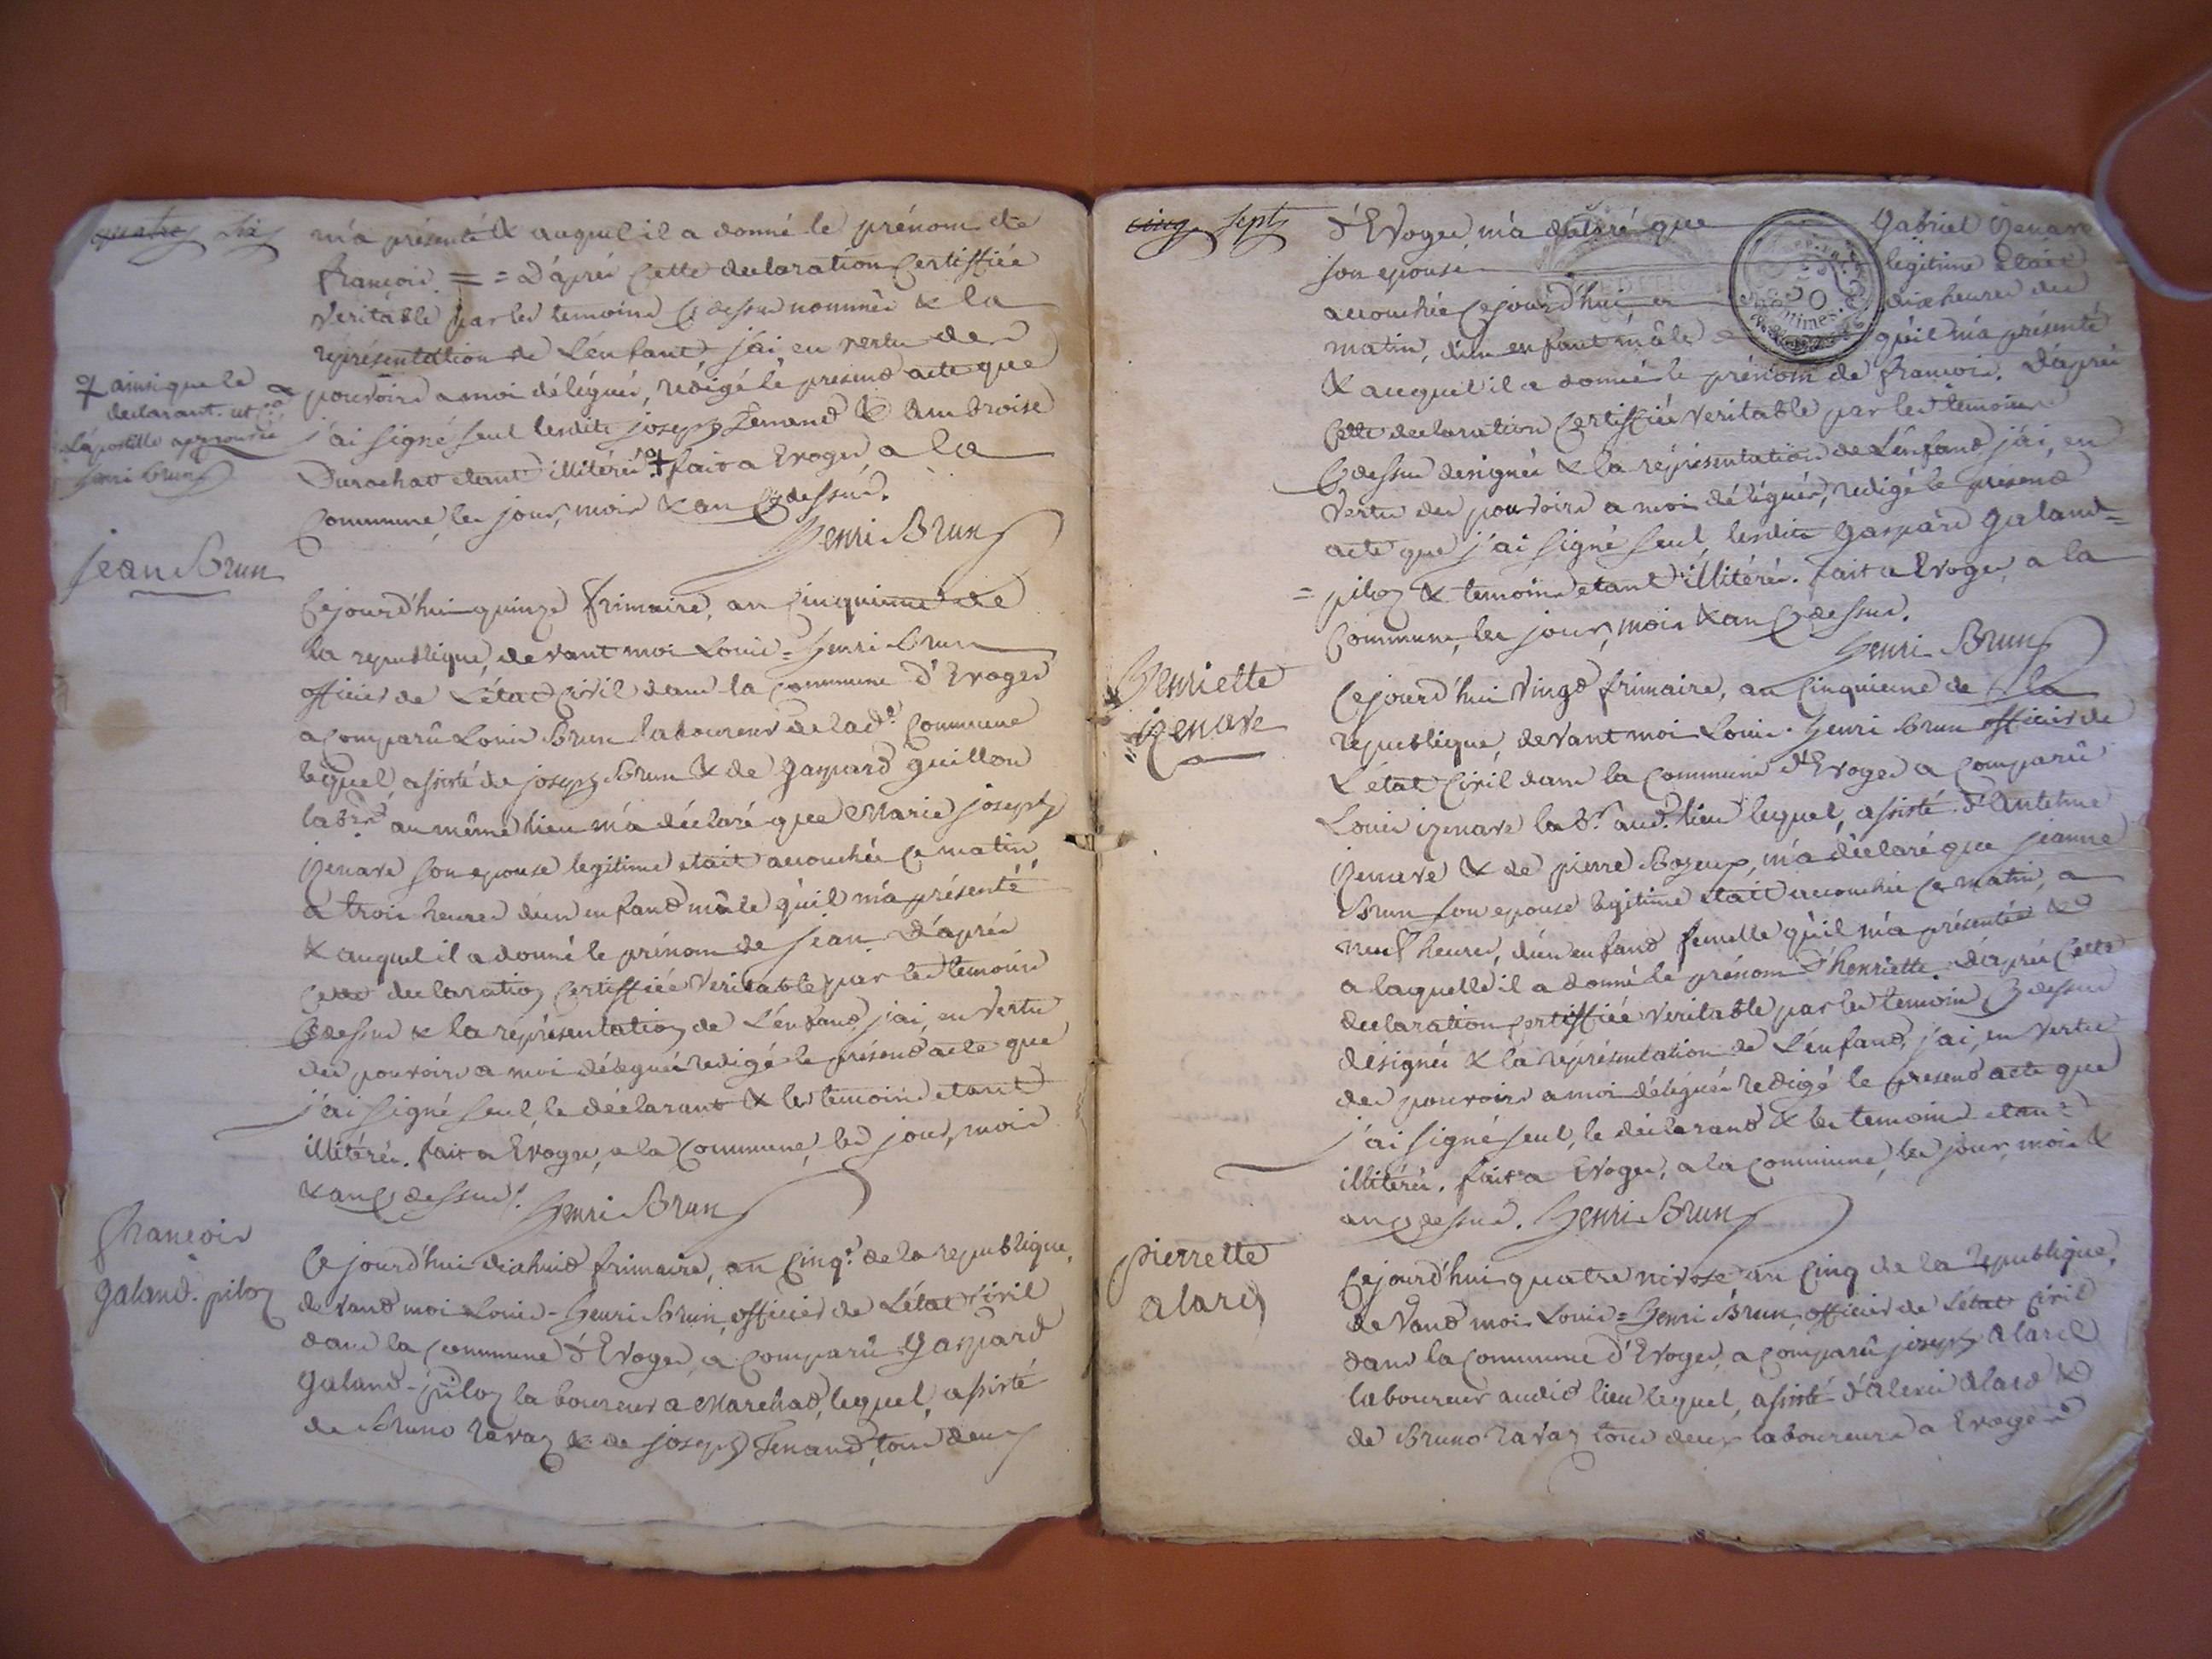 quatre six
m'a présenté & auquel il a donné le prénom de
françois. = = D'après cette declaration certiffiée
veritable par les temoins cy dessus nommés & la
représentation de l'enfant j'ai, en vertu des
pouvoirs a moi délégués, rédigé le present acte que
j'ai signé seul lesdits joseph Tenand & Ambroise
Durochat etant illitérés + fait a Evoges a la
commune, les jour, mois & an cy dessus.
Henri Brun
+ ainsi que le
declarant.
L'apostille approuvée
henri brun
jean Brun
Cejourd'hui quinze frimaire, an cinquieme de
la republique, devant moi Louis = henri brun
officier de L'état civil dans la commune d'Evoges
a comparû Louis Brun laboureur de lad.e commune
lequel, assisté de joseph Brun & de gaspard guillon
lab.rs au même lieu m'a déclaré que Marie joseph
izenave son epouse legitime etait accouchée ce matin
a trois heures d'un enfant mâle qu'il m'a présenté
& auquel il a donné le prénom de jean. D'après
cette declaration certiffiée veritable par les temoins
cy dessus & la représentation de L'enfant, j'ai, en vertu
des pouvoirs a moi délégués redigé le présent acte que
j'ai signé seul, le déclarant & les temoins etant
illitérés. fait a Evoges, a la commune, les jour, mois
& an cy dessus. Henri Brun
françois
galand. piloz
Ce jourd'hui dixhuit frimaire, an cinq.e de la republique,
devant moi Louis - henri Brun, officier de L'état civil
dans la commune d'Evoges, a comparû Gaspard
galand - piloz laboureur a Marchat, lequel, assisté
de Bruno ravaz & de joseph Tenand, tous deux
cinq sept
d'Evoges, m'a déclaré que gabriel izenave
son epouse legitime etait
accouchée cejourd'hui, a dix heures du
matin, d'un enfant mâle qu'il m'a présenté
& auquel il a donné le prénom de françois. D'après
cette declaration certiffiée veritable par les temoins
cy dessus designés & la réprésentation de L'enfant j'ai, en
vertu des pouvoirs a moi délégués, redigé le présent
acte que j'ai signé seul, lesdits gaspard galand =
= piloz & temoins etant illitérés. fait a Evoges, a la
commune, les jour, mois & an cy dessus.
Henri Brun
Henriette
izenave
Cejourd'hui vingt frimaire, an cinquieme de la
republique, devant moi Louis - henri brun officier de
L'état civil dans la commune d'Evoges a comparû
Louis izenave lab.r aud.t lieu lequel, assisté d'Anthelme
izenave & de pierre Bozeux, m'a déclaré que jeanne
Brun son epouse legitime etait accouchée ce matin, a
neuf heures, d'un enfant femelle qu'il m'a présentée &
a laquelle il a donné le prénom d'henriette. D'après cette
declaration certiffiée veritable par les temoins cy dessus
désignés & la réprésentation de L'enfant, j'ai, en vertu
des pouvoirs a moi délégués redigé le present acte que
j'ai signé seul, le déclarant & les temoins etant
illitérés. fait a Evoges, a la commune, les jour, mois &
an cy dessus. Henri Brun
pierrette
alard
Cejourd'hui quatre nivose an cinq de la republique,
devant moi Louis = henri Brun officier de L'état civil
dans la commune d'Evoges, a comparû joseph alard
laboureur audit lieu lequel, assisté d'alexis alard &
de Bruno ravaz tous deux laboureurs a Evoges